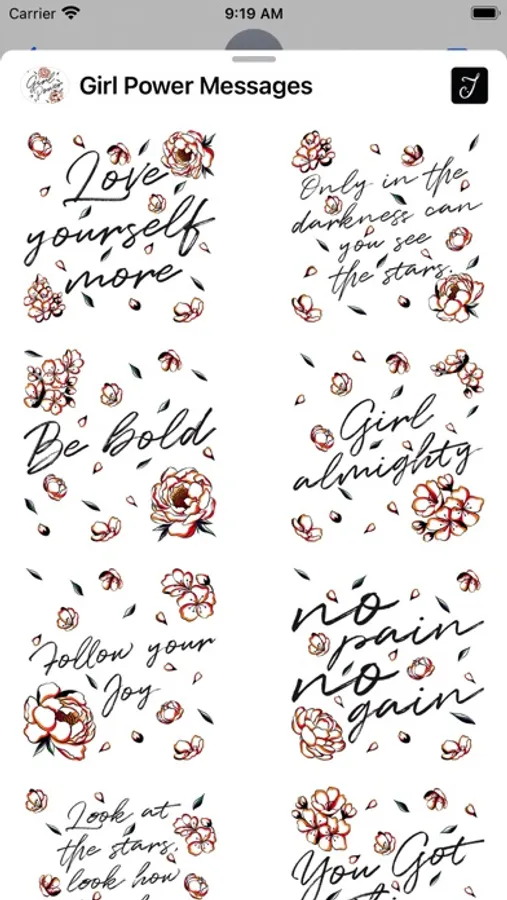 Carrier 9:19 AM
Girl Power
Girl Power Messages
Love
yourself
more
Only in the
darkness can
you see
the stars.
Be bold
Girl
almighty
Follow your
Joy
no
pain
no
gain
Look at
the stars,
look how
You Got